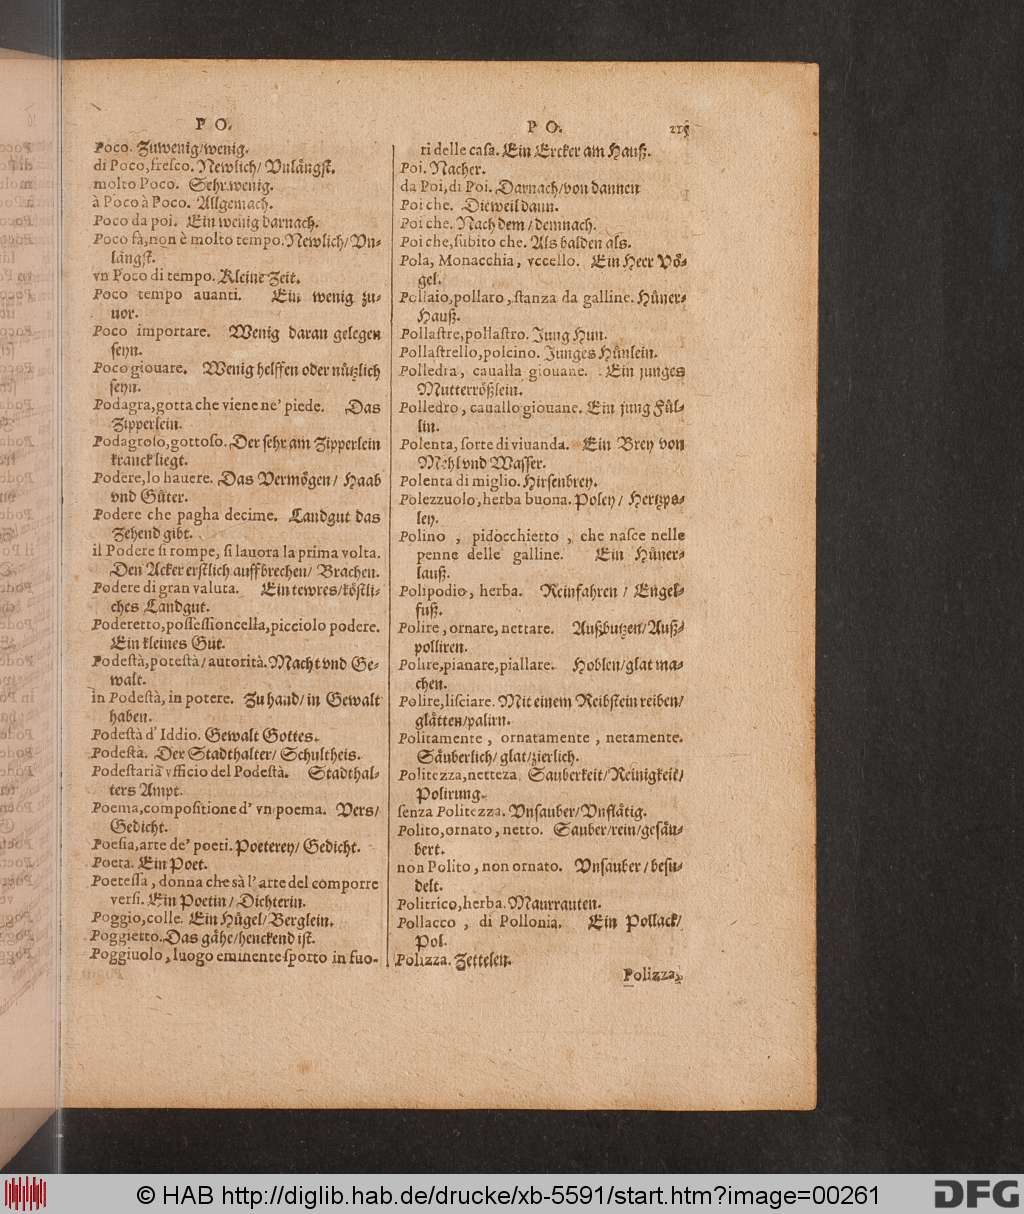 P O.
Poco. Zuwenig/wenig.
di Poco, fresco. Newlich/ Vnlängst.
molto Poco. Sehr wenig.
à Poco à Poco. Allgemach.
Poco da poi. Ein wenig darnach.
Poco fà, non è molto tempo. Newlich/ Vn-
längst.
vn Poco di tempo. Kleine Zeit.
Poco tempo auanti. Ein wenig zu-
uor.
Poco importare. Wenig daran gelegen
seyn.
Poco giouare. Wenig helffen oder nützlich
seyn.
Podagra, gotta che viene ne' piede. Das
Zipperlein.
Podagroso, gottoso. Der sehr am Zipperlein
kranck liegt.
Podere, lo hauere. Das Vermögen/ Haab
vnd Güter.
Podere che pagha decime. Landgut das
Zehend gibt.
il Podere si rompe, si lauora la prima volta.
Den Acker erstlich auffbrechen/ Brachen.
Podere di gran valuta. Ein tewres/köstli-
ches Landgut.
Poderetto, possessioncella, picciolo podere.
Ein kleines Gut.
Podestà, potestà/ autorità. Macht vnd Ge-
walt.
in Podestà, in potere. Zu hand/ in Gewalt
haben.
Podestà d' Iddio. Gewalt Gottes.
Podestà. Der Stadthalter/ Schultheis.
Podestaria vfficio del Podestà. Stadthal-
ters Ampt.
Poema, compositione d' vn poema. Vers/
Gedicht.
Poesia, arte de' poeti. Poeterey/ Gedicht.
Poeta. Ein Poet.
Poetessa, donna che sà l' arte del comporre
versi. Ein Poetin/ Dichterin.
Poggio, colle. Ein Hügel/ Berglein.
Poggietto. Das gähe/henckend ist.
Poggiuolo, luogo eminente sporto in fuo-
P O.
ri delle casa. Ein Ercker am Hauß.
Poi. Nacher.
da Poi, di Poi. Darnach/von dannen
Poi che. Dieweil dann.
Poi che. Nach dem/ demnach.
Poi che, subito che. Als balden als.
Pola, Monacchia, vccello. Ein Heer Vö-
gel.
Pollaio, pollaro, stanza da galline. Hüner-
Hauß.
Pollastre, pollastro. Jung Hun.
Pollastrello, polcino. Junges Hünlein.
Polledra, caualla giouane. Ein junges
Mutterrößlein.
Polledro, cauallo giouane. Ein jung Fül-
lin.
Polenta, sorte di viuanda. Ein Brey von
Mehl vnd Wasser.
Polenta di miglio. Hirsenbrey.
Polezzuolo, herba buona. Poley/ Hertzpo-
ley.
Polino, pidocchietto, che nasce nelle
penne delle galline. Ein Hüner-
lauß.
Polipodio, herba. Reinfahren/ Engel-
fuß.
Polire, ornare, nettare. Außbutzen/Auß-
polliren.
Polire, pianare, piallare. Hoblen/glat ma-
chen.
Polire, lisciare. Mit einem Reibstein reiben/
glätten/palirn.
Politamente, ornatamente, netamente.
Säuberlich/ glat/zierlich.
Politezza, netteza. Sauberkeit/Reinigkeit/
Polirung.
senza Politezza. Vnsauber/Vnflätig.
Polito, ornato, netto. Sauber/rein/gesäu-
bert.
non Polito, non ornato. Vnsauber/besu-
delt.
Politrico, herba. Maurrauten.
Pollacco, di Pollonia. Ein Pollack/
Pol.
Polizza. Zettelen.
Polizza,
© HAB http://diglib.hab.de/drucke/xb-5591/start.htm?image=00261
DFG